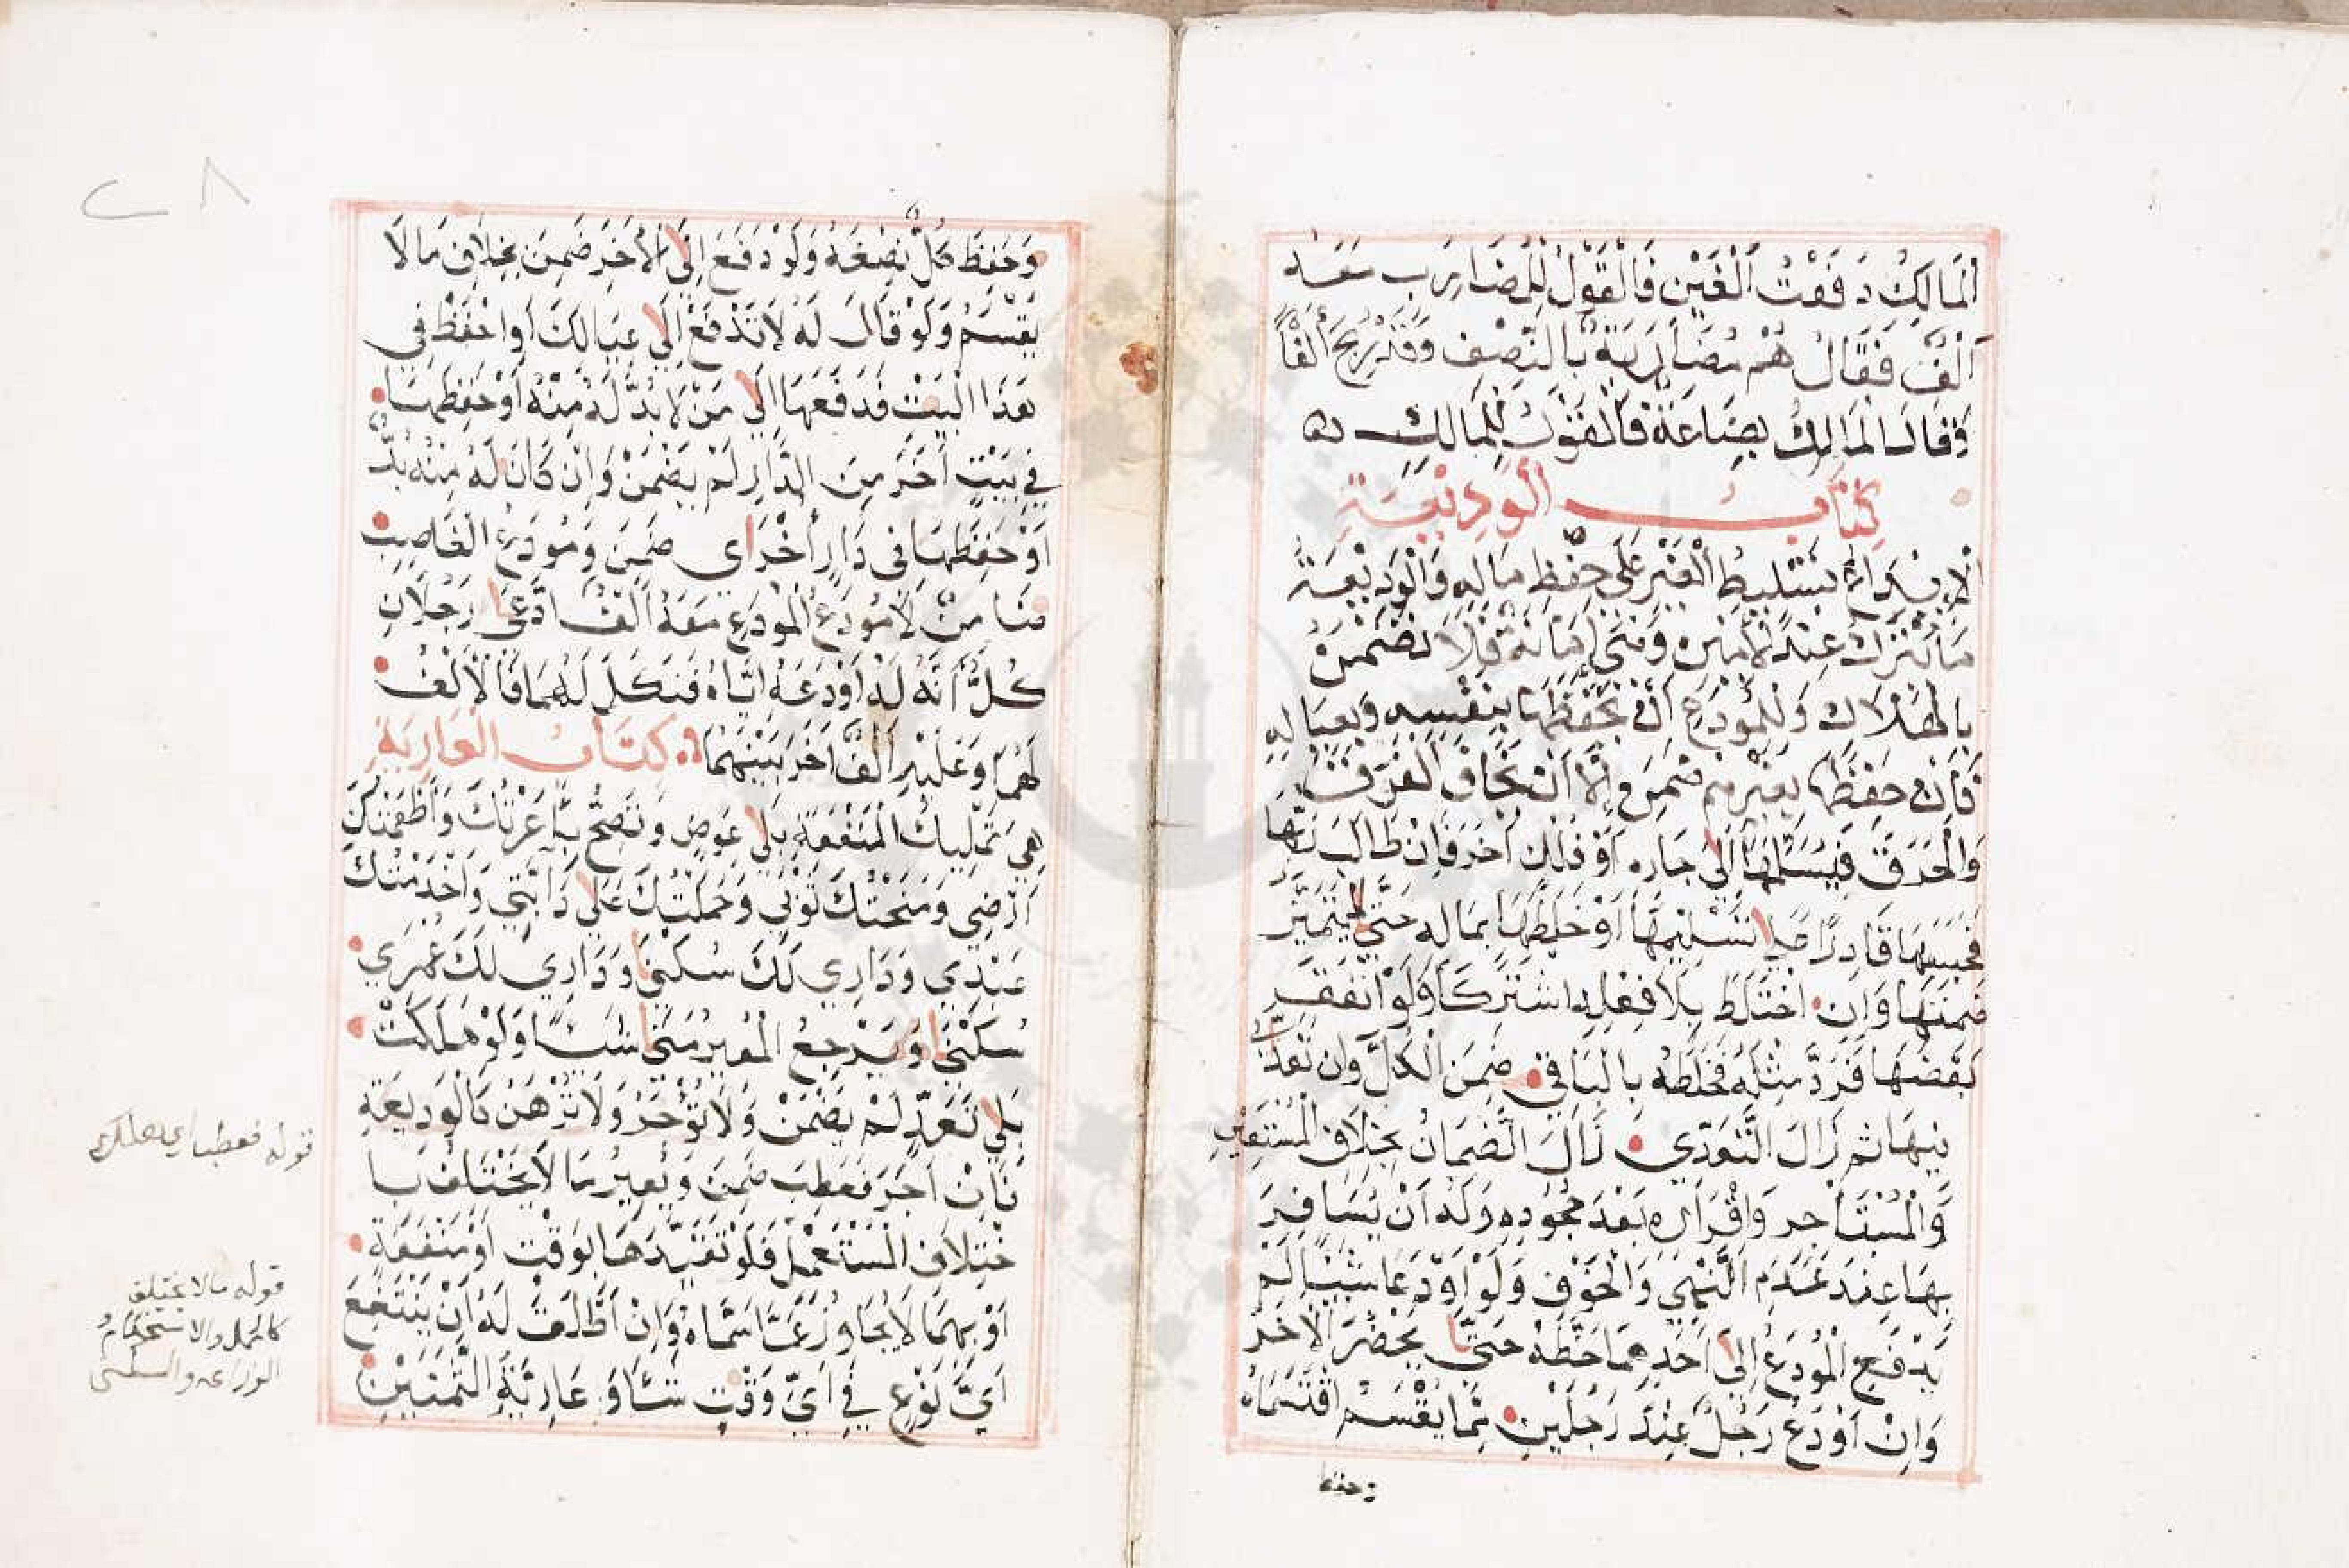 اَلْمَالِكُ دَفَعْتُ اَلْفَيْنِ فَالْقَوْلُ لِلْمُضَارِبِ مَعَهُ
اَلْفٌ فَقَالَ هُمْ مُضَارَبَةٌ بِالنِّصْفِ وَقَدْ رَبِحَ أَلْفًا
وَقَالَ الْمَالِكُ بِضَاعَةٌ فَالْقَوْلُ لِلْمَالِكِ
كِتَابُ الْوَدِيْعَةِ
اَلْاِيْدَاعُ تَسْلِيطُ الْغَيْرِ عَلَى حِفْظِ مَالِهِ وَالْوَدِيْعَةُ
مَا تُتْرَكُ عِنْدَ الْأَمِيْنِ وَهِيَ اَمَانَةٌ فَلَا تُضْمَنُ
بِالْهَلَاكِ وَلِلْمُوْدَعِ اَنْ يَحْفَظَهَا بِنَفْسِهِ وَبِعِيَالِهِ
فَاِنْ حَفِظَهَا بِغَيْرِهِمْ ضَمِنَ اِلَّا اَنْ يَخَافَ الْغَرَقَ
وَالْحَرَقَ فَيُسَلِّمَهَا اِلَى جَارِهِ اَوْ فُلْكٍ اٰخَرَ فَاِنْ طَالَبَ رَبُّهَا
فَحَبَسَهَا قَادِرًا عَلَى تَسْلِيْمِهَا اَوْ خَلَطَهَا بِمَالِهِ حَتَّى لَا يَتَمَيَّزَ
ضَمِنَهَا وَاِنِ اخْتَلَطَ بِلَا فِعْلِهِ اشْتَرَكَا وَلَوْ اَنْفَقَ
بَعْضَهَا فَرَدَّ مِثْلَهُ فَخَلَطَهُ بِالْبَاقِي ضَمِنَ الْكُلَّ وَاِنْ تَعَدَّى
فِيْهَا ثُمَّ زَالَ التَّعَدِّي زَالَ الضَّمَانُ بِخِلَافِ الْمُسْتَعِيْرِ
وَالْمُسْتَأْجِرِ وَاِقْرَارِهِ بَعْدَ جُحُوْدِهِ وَلَهُ اَنْ يُسَافِرَ
بِهَا عِنْدَ عَدَمِ النَّهْيِ وَالْخَوْفِ وَلَوْ اَوْدَعَا شَيْئًا لَمْ
يَدْفَعِ الْمُوْدَعُ اِلَى اَحَدِهِمَا حَظَّهُ حَتَّى يَحْضُرَ الْاٰخَرُ
وَاِنْ اَوْدَعَ رَجُلٌ عِنْدَ رَجُلَيْنِ مِمَّا يُقْسَمُ اقْتَسَمَاهُ
وحفظ
٢٨
وَحَفِظَ كُلٌّ نِصْفَهُ وَلَوْ دَفَعَ اِلَى الْأٰخَرِ ضَمِنَ بِخِلَافِ مَا لَا
يُقْسَمُ وَلَوْ قَالَ لَهُ لَا تَدْفَعْ اِلَى عِيَالِكَ اَوِ احْفَظْ فِي
هَذَا الْبَيْتِ فَدَفَعَهَا اِلَى مَنْ لَا بُدَّ لَهُ مِنْهُ اَوْ حَفِظَهَا
فِي بَيْتٍ اٰخَرَ مِنَ الدَّارِ لَمْ يَضْمَنْ وَاِنْ كَانَ لَهُ مِنْهُ بُدٌّ
اَوْ حَفِظَهَا فِي دَارٍ أُخْرَاى ضَمِنَ وَمُوْدَعُ الْغَاصِبِ
ضَامِنٌ لَا مُوْدَعُ الْمُوْدَعِ مَعَهُ اَلْفٌ ادَّعَى رَجُلَانِ
كُلٌّ أَنَّهُ لَهُ اَوْدَعَهُ اِيَّاهُ فَنَكَلَ لَهُمَا فَالْأَلْفُ
لَهُمَا وَعَلَيْهِ اَلْفٌ اٰخَرُ بَيْنَهُمَا كِتَابُ الْعَارِيَةِ
هِيَ تَمْلِيْكُ الْمَنْفَعَةِ بِلَا عِوَضٍ وَتَصِحُّ بِاَعَرْتُكَ وَاَطْعَمْتُكَ
اَرْضِي وَمَنَحْتُكَ ثَوْبِي وَحَمَلْتُكَ عَلَى دَابَّتِي وَاَخْدَمْتُكَ
عَبْدِي وَدَارِي لَكَ سُكْنَى وَدَارِي لَكَ عُمْرِي
سُكْنَى وَيَرْجِعُ الْمُعِيْرُ مَتَى شَاءَ وَلَوْ هَلَكَتْ
بِلَا تَعَدٍّ لَمْ يَضْمَنْ وَلَا تُؤْجَرُ وَلَا تُرْهَنُ كَالْوَدِيْعَةِ
فَاِنْ اٰجَرَ فَعَطِبَ ضَمِنَ وَيُعِيْرُ مَا لَا يَخْتَلِفُ بِا
خْتِلَافِ الْمُسْتَعْمِلِ فَلَوْ تَقَيَّدَهَا بِوَقْتٍ اَوْ مَنْفَعَةٍ
اَوْ بِهِمَا لَا يُجَاوِزُ عَمَّا سَمَّاهُ وَاِنْ اَطْلَقَ لَهُ اَنْ يَنْتَفِعَ
اَيَّ نَوْعٍ فِي اَيِّ وَقْتٍ شَاءَ وَعَارِيَةُ الثَّمَنَيْنِ
قوله فعطب اي هلك
قوله مالا يختلف
كالحمل والاستخدام
الزراعه والسكنى